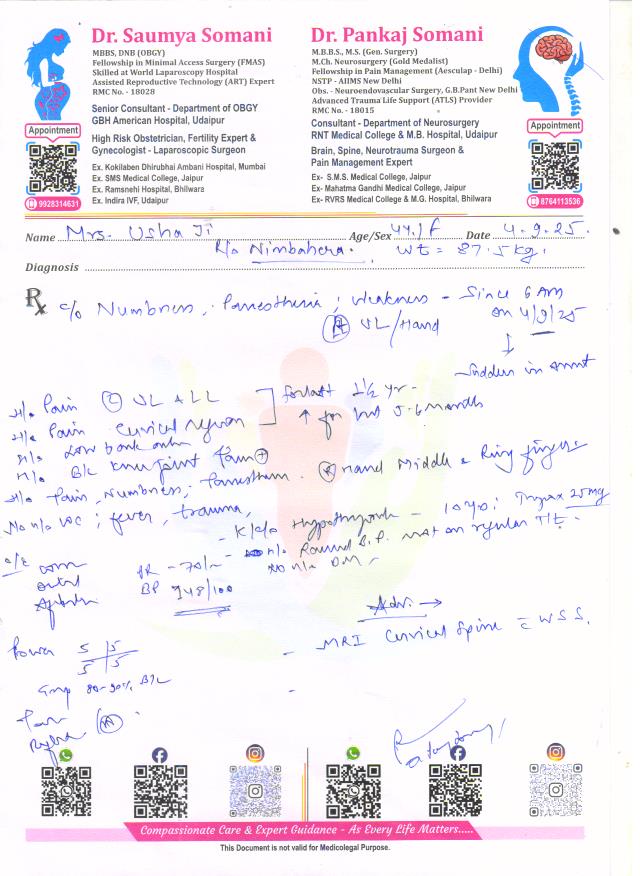 Dr. Saumya Somani
MBBS, DNB (OBGY)
Fellowship in Minimal Access Surgery (FMAS)
Skilled at World Laparoscopy Hospital
Assisted Reproductive Technology (ART) Expert
RMC No. - 18028
Senior Consultant - Department of OBGY
GBH American Hospital, Udaipur
High Risk Obstetrician, Fertility Expert &
Gynecologist - Laparoscopic Surgeon
Ex. Kokilaben Dhirubhai Ambani Hospital, Mumbai
Ex. SMS Medical College, Jaipur
Ex. Ramsnehi Hospital, Bhilwara
Ex. Indira IVF, Udaipur
Appointment
9928314631
Dr. Pankaj Somani
M.B.B.S., M.S. (Gen. Surgery)
M.Ch. Neurosurgery (Gold Medalist)
Fellowship in Pain Management (Aesculap - Delhi)
NSTP - AIIMS New Delhi
Obs. - Neuroendovascular Surgery, G.B.Pant New Delhi
Advanced Trauma Life Support (ATLS) Provider
RMC No. - 18015
Consultant - Department of Neurosurgery
RNT Medical College & M.B. Hospital, Udaipur
Brain, Spine, Neurotrauma Surgeon &
Pain Management Expert
Ex- S.M.S. Medical College, Jaipur
Ex- Mahatma Gandhi Medical College, Jaipur
Ex- RVRS Medical College & M.G. Hospital, Bhilwara
Appointment
8764113536
Name Mrs. Usha Ji Age/Sex 44y/f Date 4.9.25.
R/o Nimbahera. Wt = 87.5kg.
Diagnosis
Rx c/o Numbness, Paresthesia, weakness - Since 6 AM
on 4/9/25
UL/Hand
Sudden in
H/o Pain UL & LL for last 1 1/2 yr -
H/o Pain Cervical region ↑ for last 5-6 months
H/o
H/o B/L knee joint Pain +
H/o Pain, Numbness, Paresthesia hand Middle & Ring finger
No h/o LOC, fever, trauma,
- K/c/o - 10 yrs; 25 mg
- h/o B.P. not on regular T/t -
No h/o D.M -
o/e PR - 70/m
BP 148/100
Adv. →
Power 5/5 5/5
- MRI Cervical Spine c̄ WSS.
Grip 80-90% B/L
-
Compassionate Care & Expert Guidance - As Every Life Matters.....
This Document is not valid for Medicolegal Purpose.